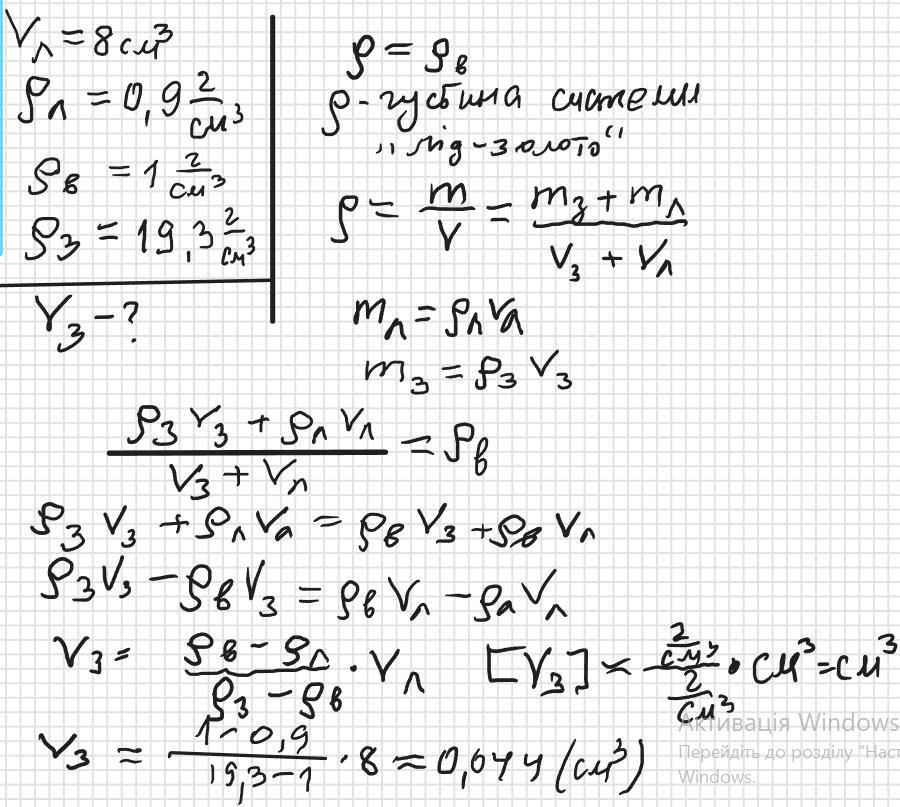 Vл = 8 см³
ρл = 0,9 г/см³
ρв = 1 г/см³
ρз = 19,3 г/см³
Vз - ?
ρ = ρв
ρ - густина системи
"лід - золото"
ρ = m/V = (mз + mл)/(Vз + Vл)
mл = ρл Vл
mз = ρз Vз
(ρз Vз + ρл Vл)/(Vз + Vл) = ρв
ρз Vз + ρл Vл = ρв Vз + ρв Vл
ρз Vз - ρв Vз = ρв Vл - ρл Vл
Vз = (ρв - ρл)/(ρз - ρв) · Vл [Vз] = (г/см³)/(г/см³) · см³ = см³
Vз = (1 - 0,9)/(19,3 - 1) · 8 ≈ 0,044 (см³)
Активація Windows
Перейдіть до розділу "Наст
Windows.